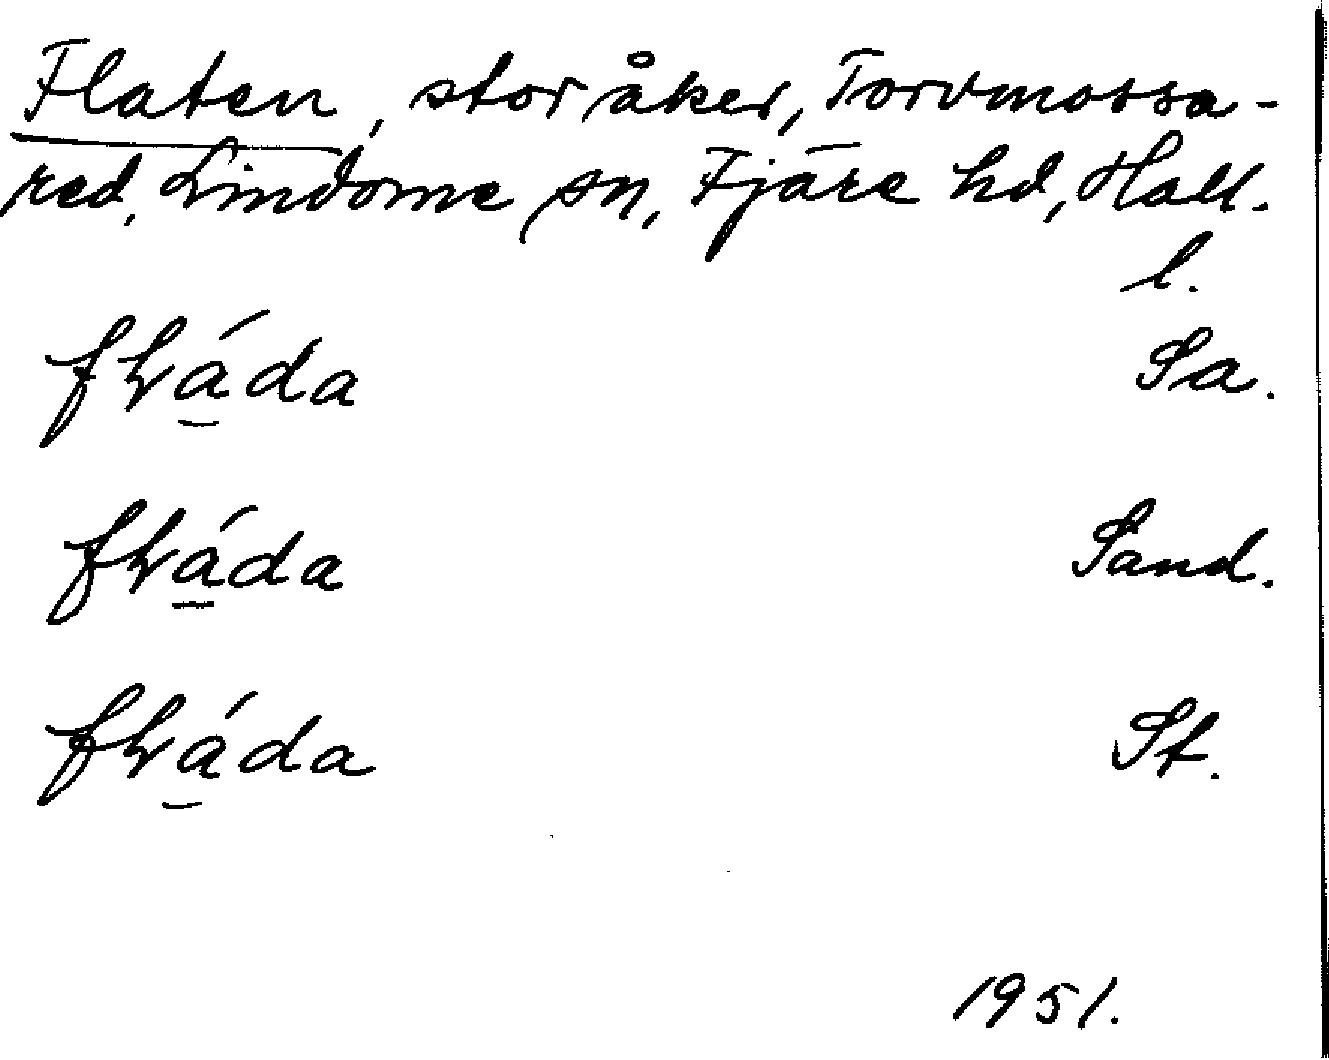 Flaten, stor åker, Torvmossa-
red, Lindome sn, Fjäre hd, Hall.
l.
fɫáda Sa.
fɫáda Sand.
fɫáda St.
1951.